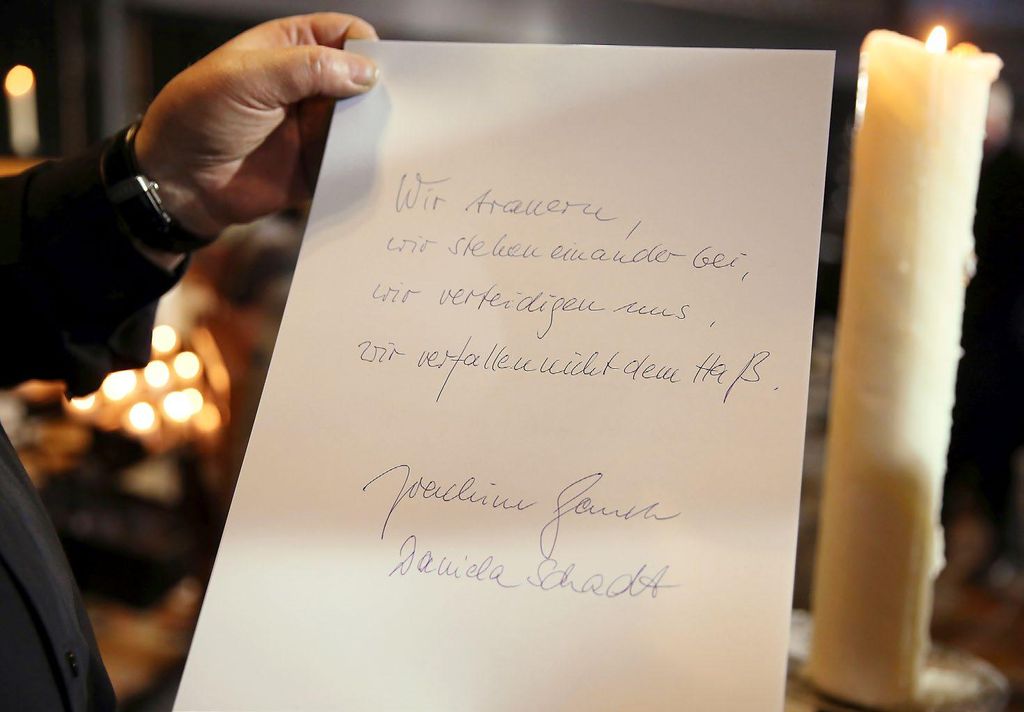 Wir trauern,
wir stehen einander bei,
wir verteidigen uns,
wir verfallen nicht dem Haß.
Joachim Gauck
Daniela Schadt